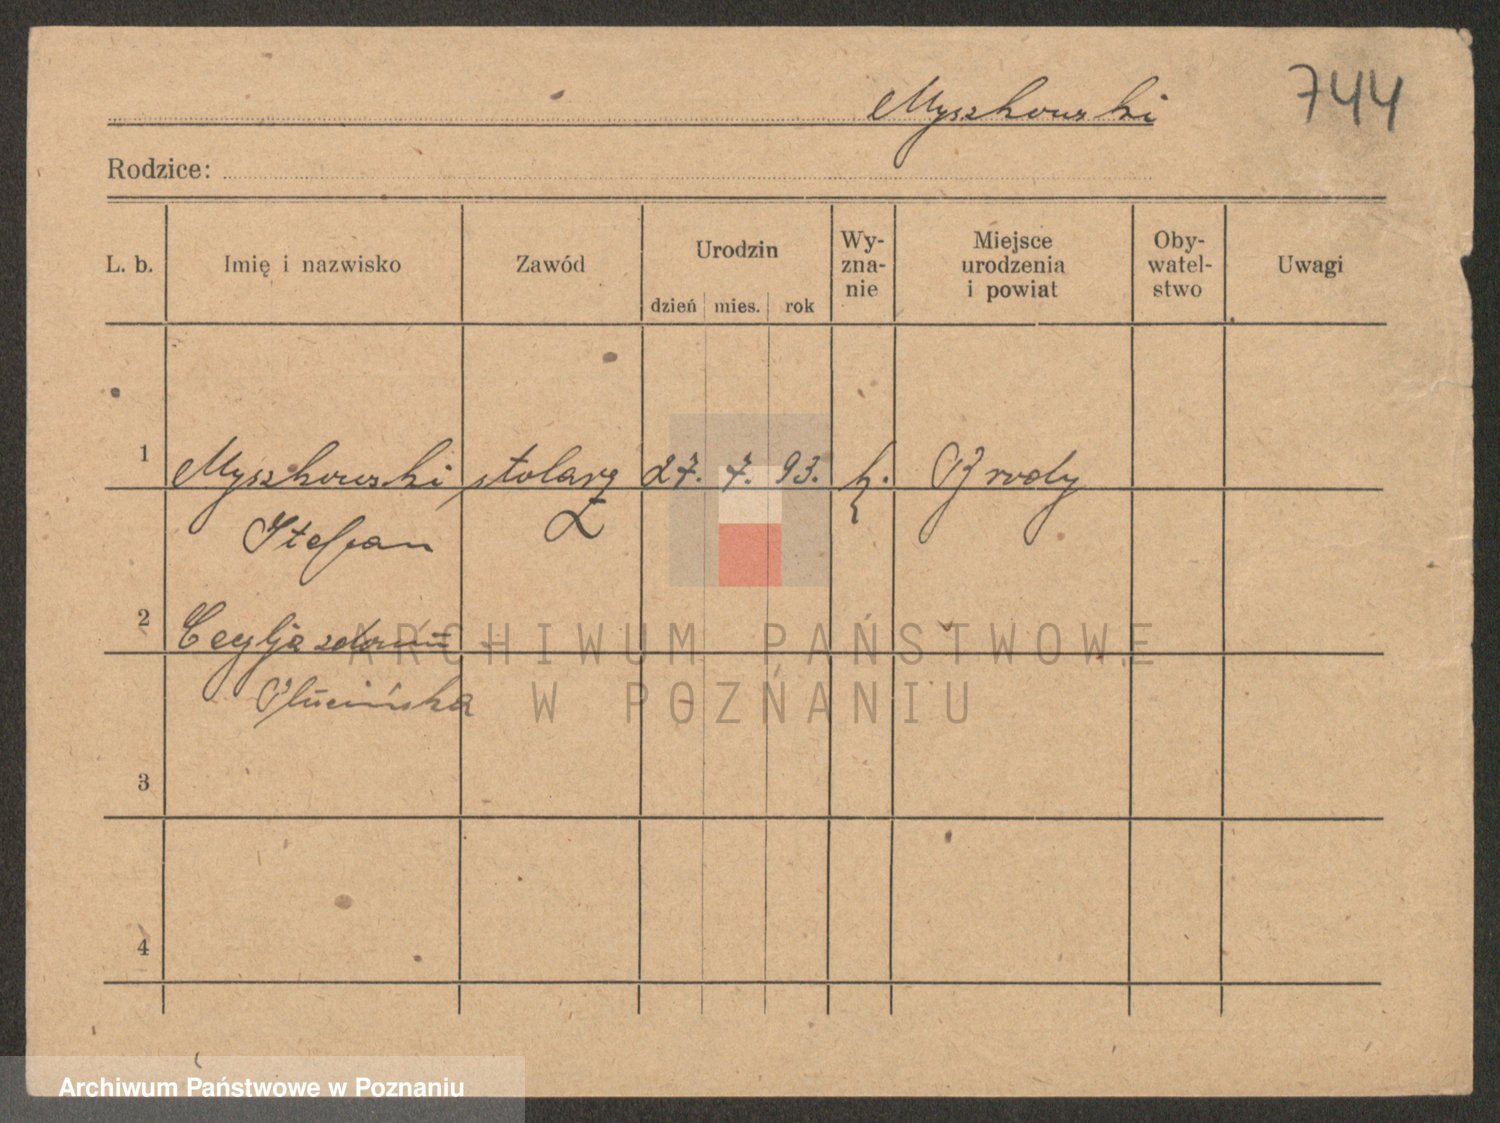 Myszkowski
744
Rodzice:
L. b.
Imię i nazwisko
Zawód
Urodzin
dzień mies. rok
Wy-
zna-
nie
Miejsce
urodzenia
i powiat
Oby-
watel-
stwo
Uwagi
1 Myszkowski stolarz 27. 7. 93. k. Brody
Stefan Ż
2 Cecylja z domu
Plucińska
3
4
ARCHIWUM PAŃSTWOWE
W POZNANIU
Archiwum Państwowe w Poznaniu